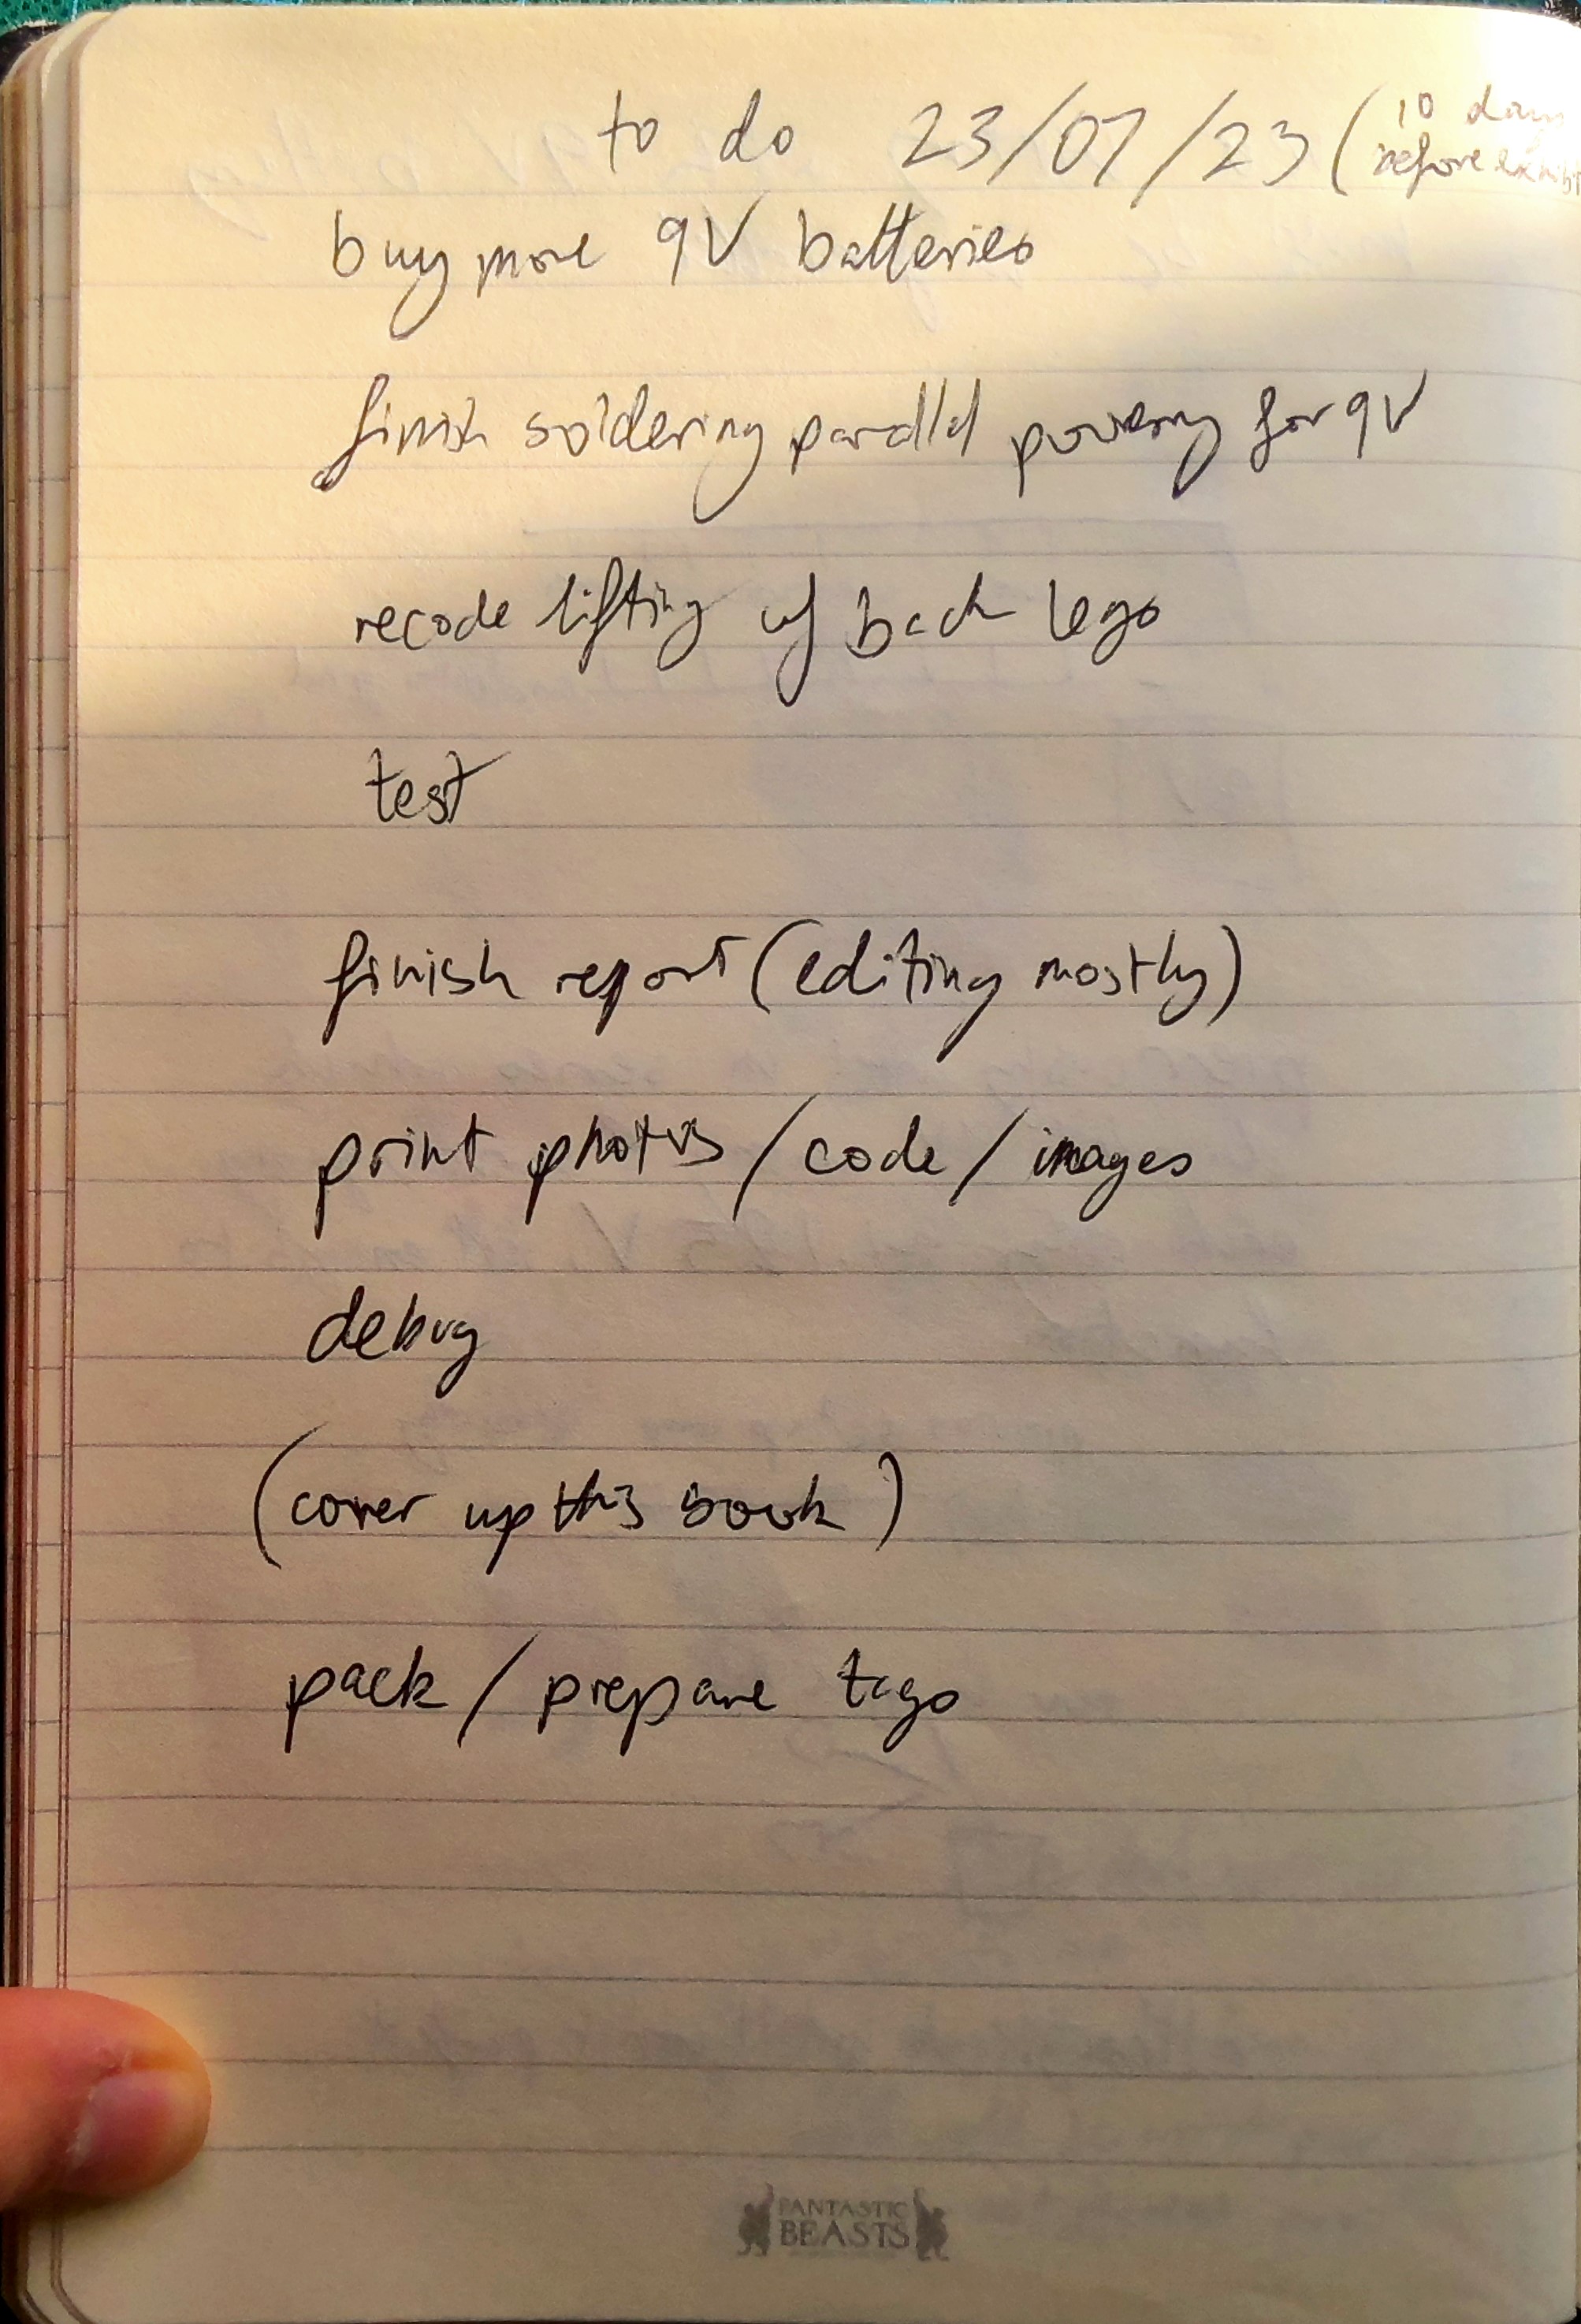 to do 23/07/23 (10 days
before exhibi
buy more 9V batteries
finish soldering parallel powering for 9V
recode lifting of back legs
test
finish report (editing mostly)
print photos / code / images
debug
(cover up this book)
pack / prepare tags
FANTASTIC
BEASTS